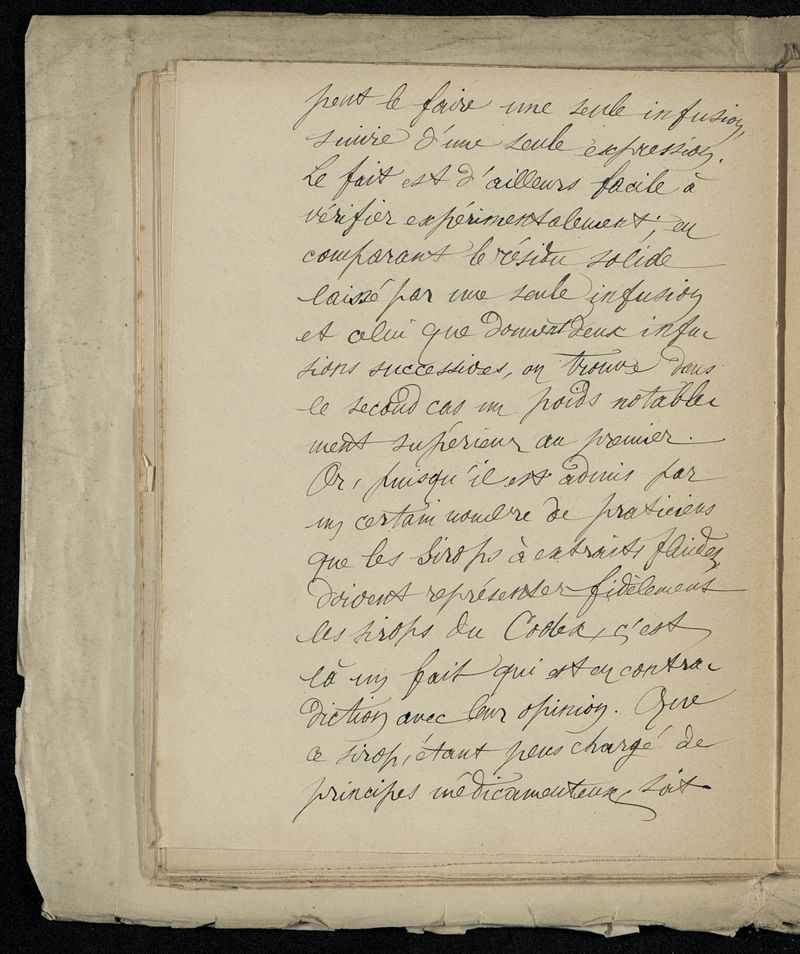 peut le faire une seule infusion,
suivie d'une seule expression.
Le fait est d'ailleurs facile à
vérifier expérimentalement; en
comparant le résidu solide
laissé par une seule infusion
et celui que donnent deux infu-
sions successives, on trouve dans
le second cas un poids notable-
ment supérieur au premier.
Or, puisqu'il est admis par
un certain nombre de praticiens
que les sirops à extraits fluides
doivent représenter fidèlement
les sirops du Codex, c'est
là un fait qui est en contra-
diction avec leur opinion. Que
ce sirop, étant peu chargé de
principes médicamenteux, soit